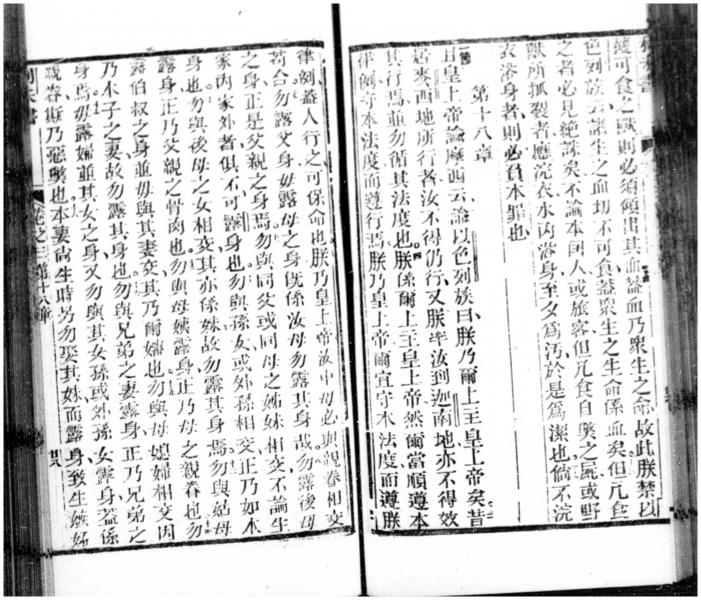 獲可食之獸則必須傾出其血蓋血乃衆生之命故此朕禁以
色列族云諸生之血切不可食蓋衆生之生命係血矣但凡食
之者必見絕誅矣不論本国人或旅客但凡食自斃之屍或野
獸所抓裂者應浣衣水内浴身至夕為污於是為潔也倘不浣
衣浴身者則必負本罪也
第十八章
且皇上帝諭摩西云諭以色列族曰朕乃爾上主皇上帝矣昔
居麥西地所行者汝不得仍行又朕率汝到迦南地亦不得效
其行焉並勿循其法度也朕係爾上主皇上帝然爾當順遵本
律例守本法度而遵行焉朕乃皇上帝爾宜守本法度而遵朕
律例蓋人行之可保命也朕乃皇上帝汝中毋必與親眷相交
苟合勿露父身毋露母之身旣係汝母勿露其身哉勿露後母
之身正是父親之身焉勿與同父或同母之姊妹相交不論生
家内家外者俱不可露身也勿與孫女或外孫相交正乃如本
身也勿與後母之女相交其亦係妹故勿露其身焉勿與姑母
露身正乃父親之骨肉也勿與母姨露身正乃母之親眷也勿
露伯叔之身並毋與其妻交其乃爾嬸也勿與母媳婦相交因
乃本子之妻故勿露其身也勿與兄弟之妻露身正乃兄弟之
身焉毋露婦並其女之身又勿與其女孫或外孫女露身蓋係
親眷斯乃惡獘也本妻尚生時另勿娶其妹而露身致生嫉妒
卷之三第十八章
廿八